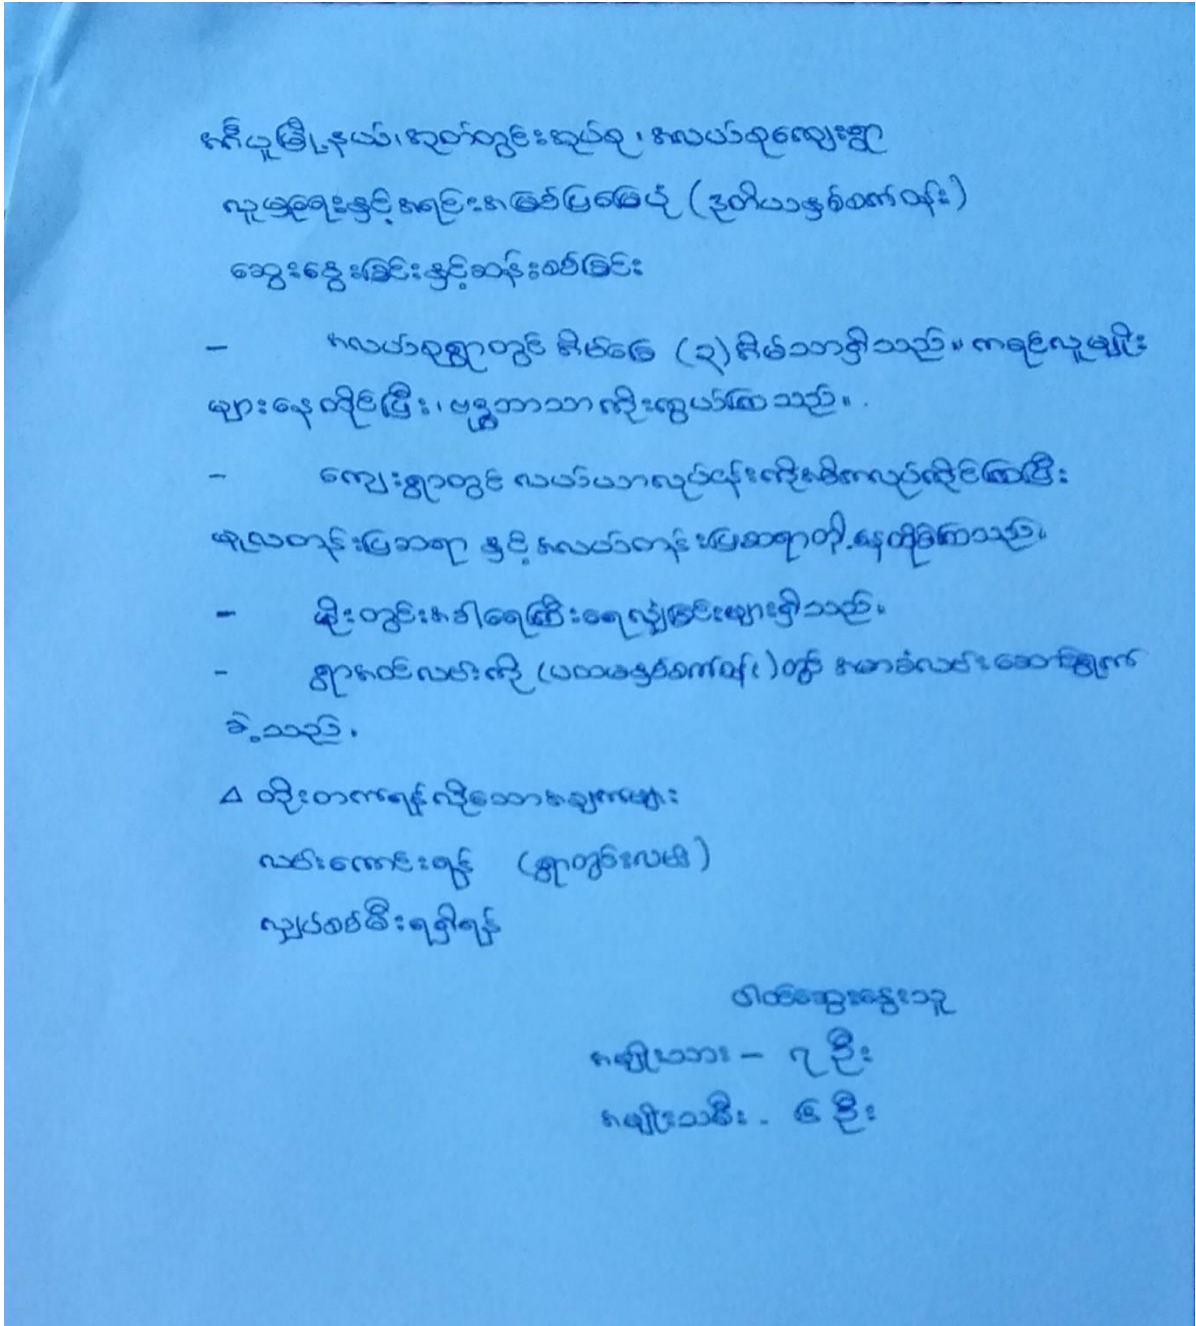 အင်္ဂပူမြို့နယ်၊အုတ်တွင်းအုပ်စု၊အလယ်စုကျေးရွာ
လူမှုရေးနှင့်အရင်းအမြစ်ပြမြေပုံ (ဒုတိယနှစ်စက်ဝန်း)
ဆွေးနွေးခြင်းနှင့်ဆန်းစစ်ခြင်း
- အလယ်စုရွာတွင် အိမ်ခြေ (၃)အိမ်သာရှိသည်။ ကရင်လူမျိုး
များနေထိုင်ပြီး၊ ဗုဒ္ဓဘာသာကိုးကွယ်ကြသည်။
- ကျေးရွာတွင် လယ်ယာလုပ်ငန်းကိုအဓိကလုပ်ကိုင်ကြပြီး
မူလတန်းပြဆရာ နှင့်အလယ်တန်းပြဆရာတို့နေထိုင်ကြသည်။
- မိုးတွင်းအခါရေကြီးရေလျှံခြင်းများရှိသည်။
- ရွာအဝင်လမ်းကို (ပထမနှစ်စက်ဝန်း)တွင် အမာခံလမ်းဆောင်ရွက်
ခဲ့သည်။
△ တိုးတက်ရန်လိုသောအချက်များ
လမ်းကောင်းရန် (ရွာတွင်းလမ်း)
လျှပ်စစ်မီးရရှိရန်
ပါဝင်ဆွေးနွေးသူ
အမျိုးသား - ၇ ဦး
အမျိုးသမီး - ၆ ဦး